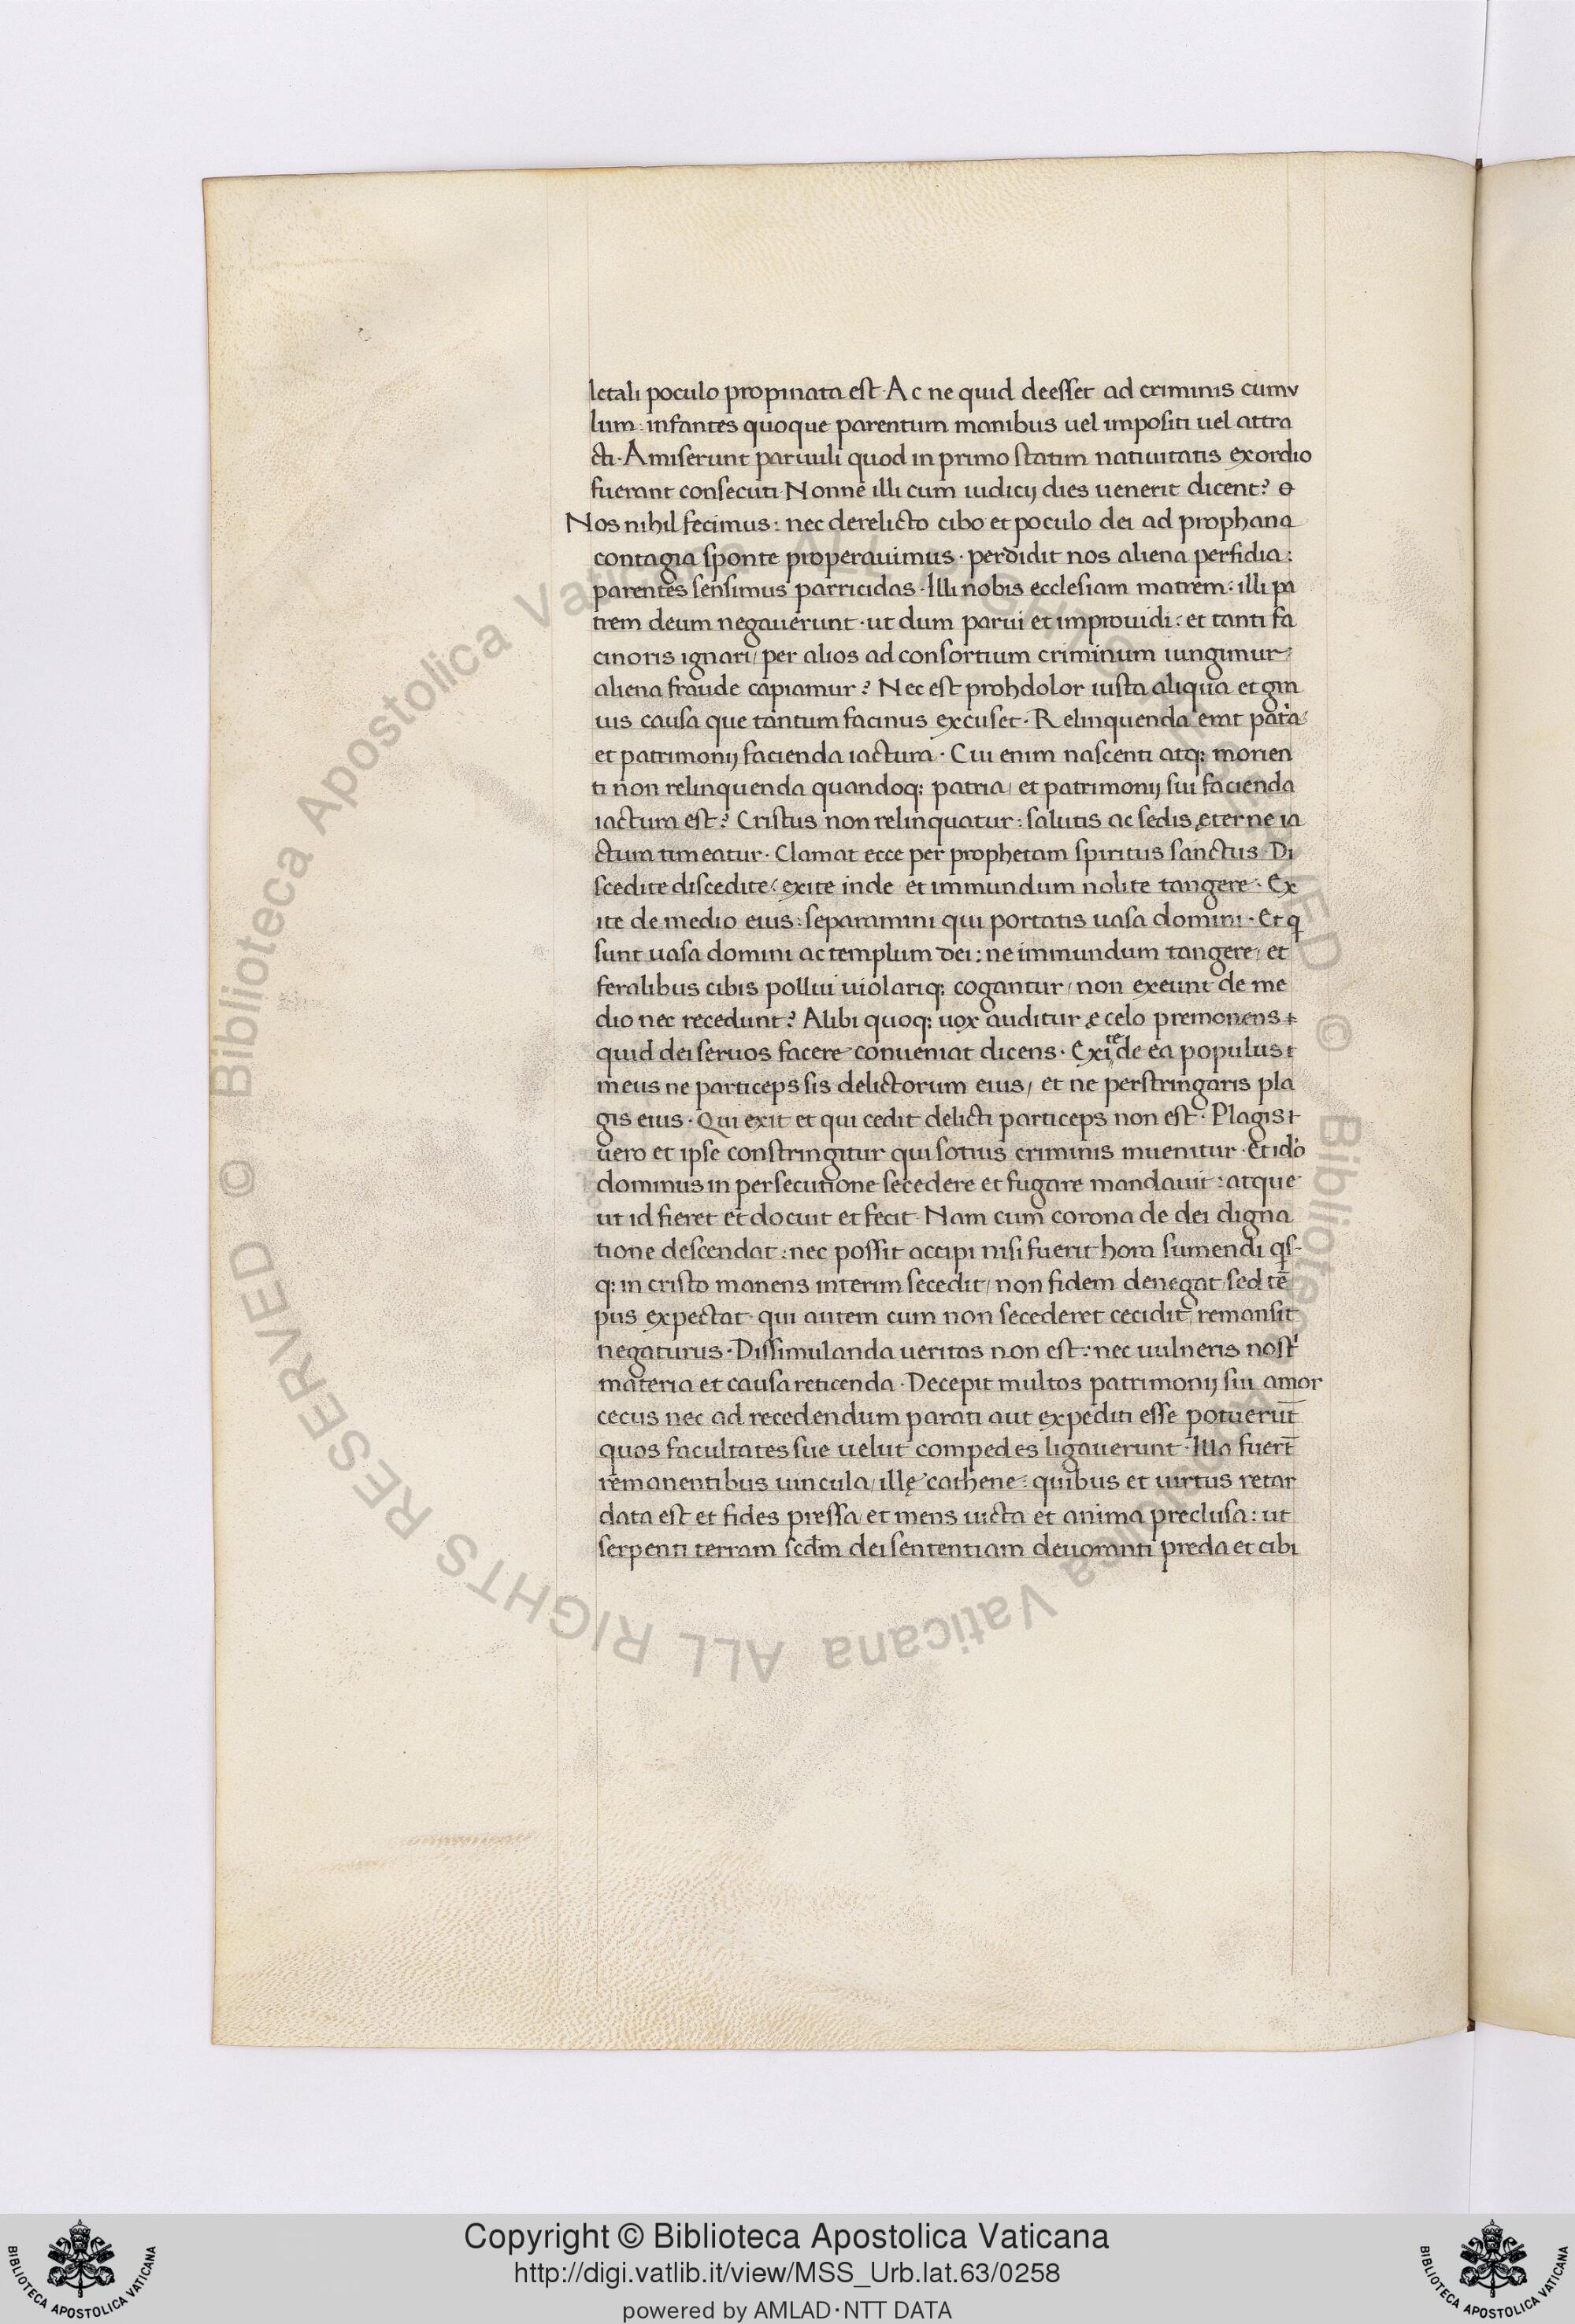 letali poculo propinata est · Ac ne quid deesset ad criminis cumu
lum : infantes quoque parentum manibus uel impositi uel attra
cti · Amiserunt paruuli quod in primo statim natiuitatis exordio
fuerant consecuti · Nonne illi cum iudicij dies uenerit dicent?
Nos nihil fecimus : nec derelicto cibo et poculo dei ad prophana
contagia sponte properauimus · perdidit nos aliena perfidia :
parentes sensimus parricidas · Illi nobis ecclesiam matrem : illi pa
trem deum negauerunt · ut dum parui et improuidi : et tanti fa
cinoris ignari / per alios ad consortium criminum iungimur /
aliena fraude capiamur? Nec est prohdolor iusta aliqua et gra
uis causa que tantum facinus excuset · Relinquenda erat pat'a :
et patrimonij facienda iactura · Cui enim nascenti atq; morien
ti non relinquenda quandoq; patria / et patrimonij sui facienda
iactura est? Cristus non relinquatur : salutis ac sedis ęterne ia
ctura timeatur · Clamat ecce per prophetam spiritus sanctus · Di
scedite discedite : exite inde et immundum nolite tangere · Ex
ite de medio eius : separamini qui portatis uasa domini · Et q
sunt uasa domini ac templum dei : ne immundum tangere / et
feralibus cibis pollui uiolariq; cogantur / non exeunt de me
dio nec recedunt? Alibi quoq; uox auditur e celo premonens
quid dei seruos facere conueniat dicens · Exite de ea populus
meus ne particeps sis delictorum eius / et ne perstringaris pla
gis eius · Qui exit et qui cedit delicti particeps non est · Plagis
uero et ipse constringitur qui sotius criminis inuenitur · Et id'o
dominus in persecutione secedere et fugare mandauit : atque
ut id fieret et docuit et fecit · Nam cum corona de dei digna
tione descendat : nec possit accipi nisi fuerit hora sumendi qs-
q; in cristo manens interim secedit / non fidem denegat / sed tē
pus expectat · qui autem cum non secederet cecidit / remansit
negaturus · Dissimulanda ueritas non est : nec uulneris nost'
materia et causa reticenda · Decepit multos patrimonij sui amor
cecus nec ad recedendum parati aut expediti esse potuerūt
quos facultates sue uelut compedes ligauerunt · Illa fuerт̄
remanentibus uincula / illę cathene : quibus et uirtus retar
data est et fides pressa / et mens uicta et anima preclusa : ut
serpenti terram scdm̄ dei sententiam deuoranti preda et cibi
Copyright © Biblioteca Apostolica Vaticana
http://digi.vatlib.it/view/MSS_Urb.lat.63/0258
powered by AMLAD · NTT DATA
BIBLIOTECA APOSTOLICA VATICANA
BIBLIOTECA APOSTOLICA VATICANA
© Biblioteca Apostolica Vaticana ALL RIGHTS RESERVED
© Biblioteca Apostolica Vaticana ALL RIGHTS RESERVED